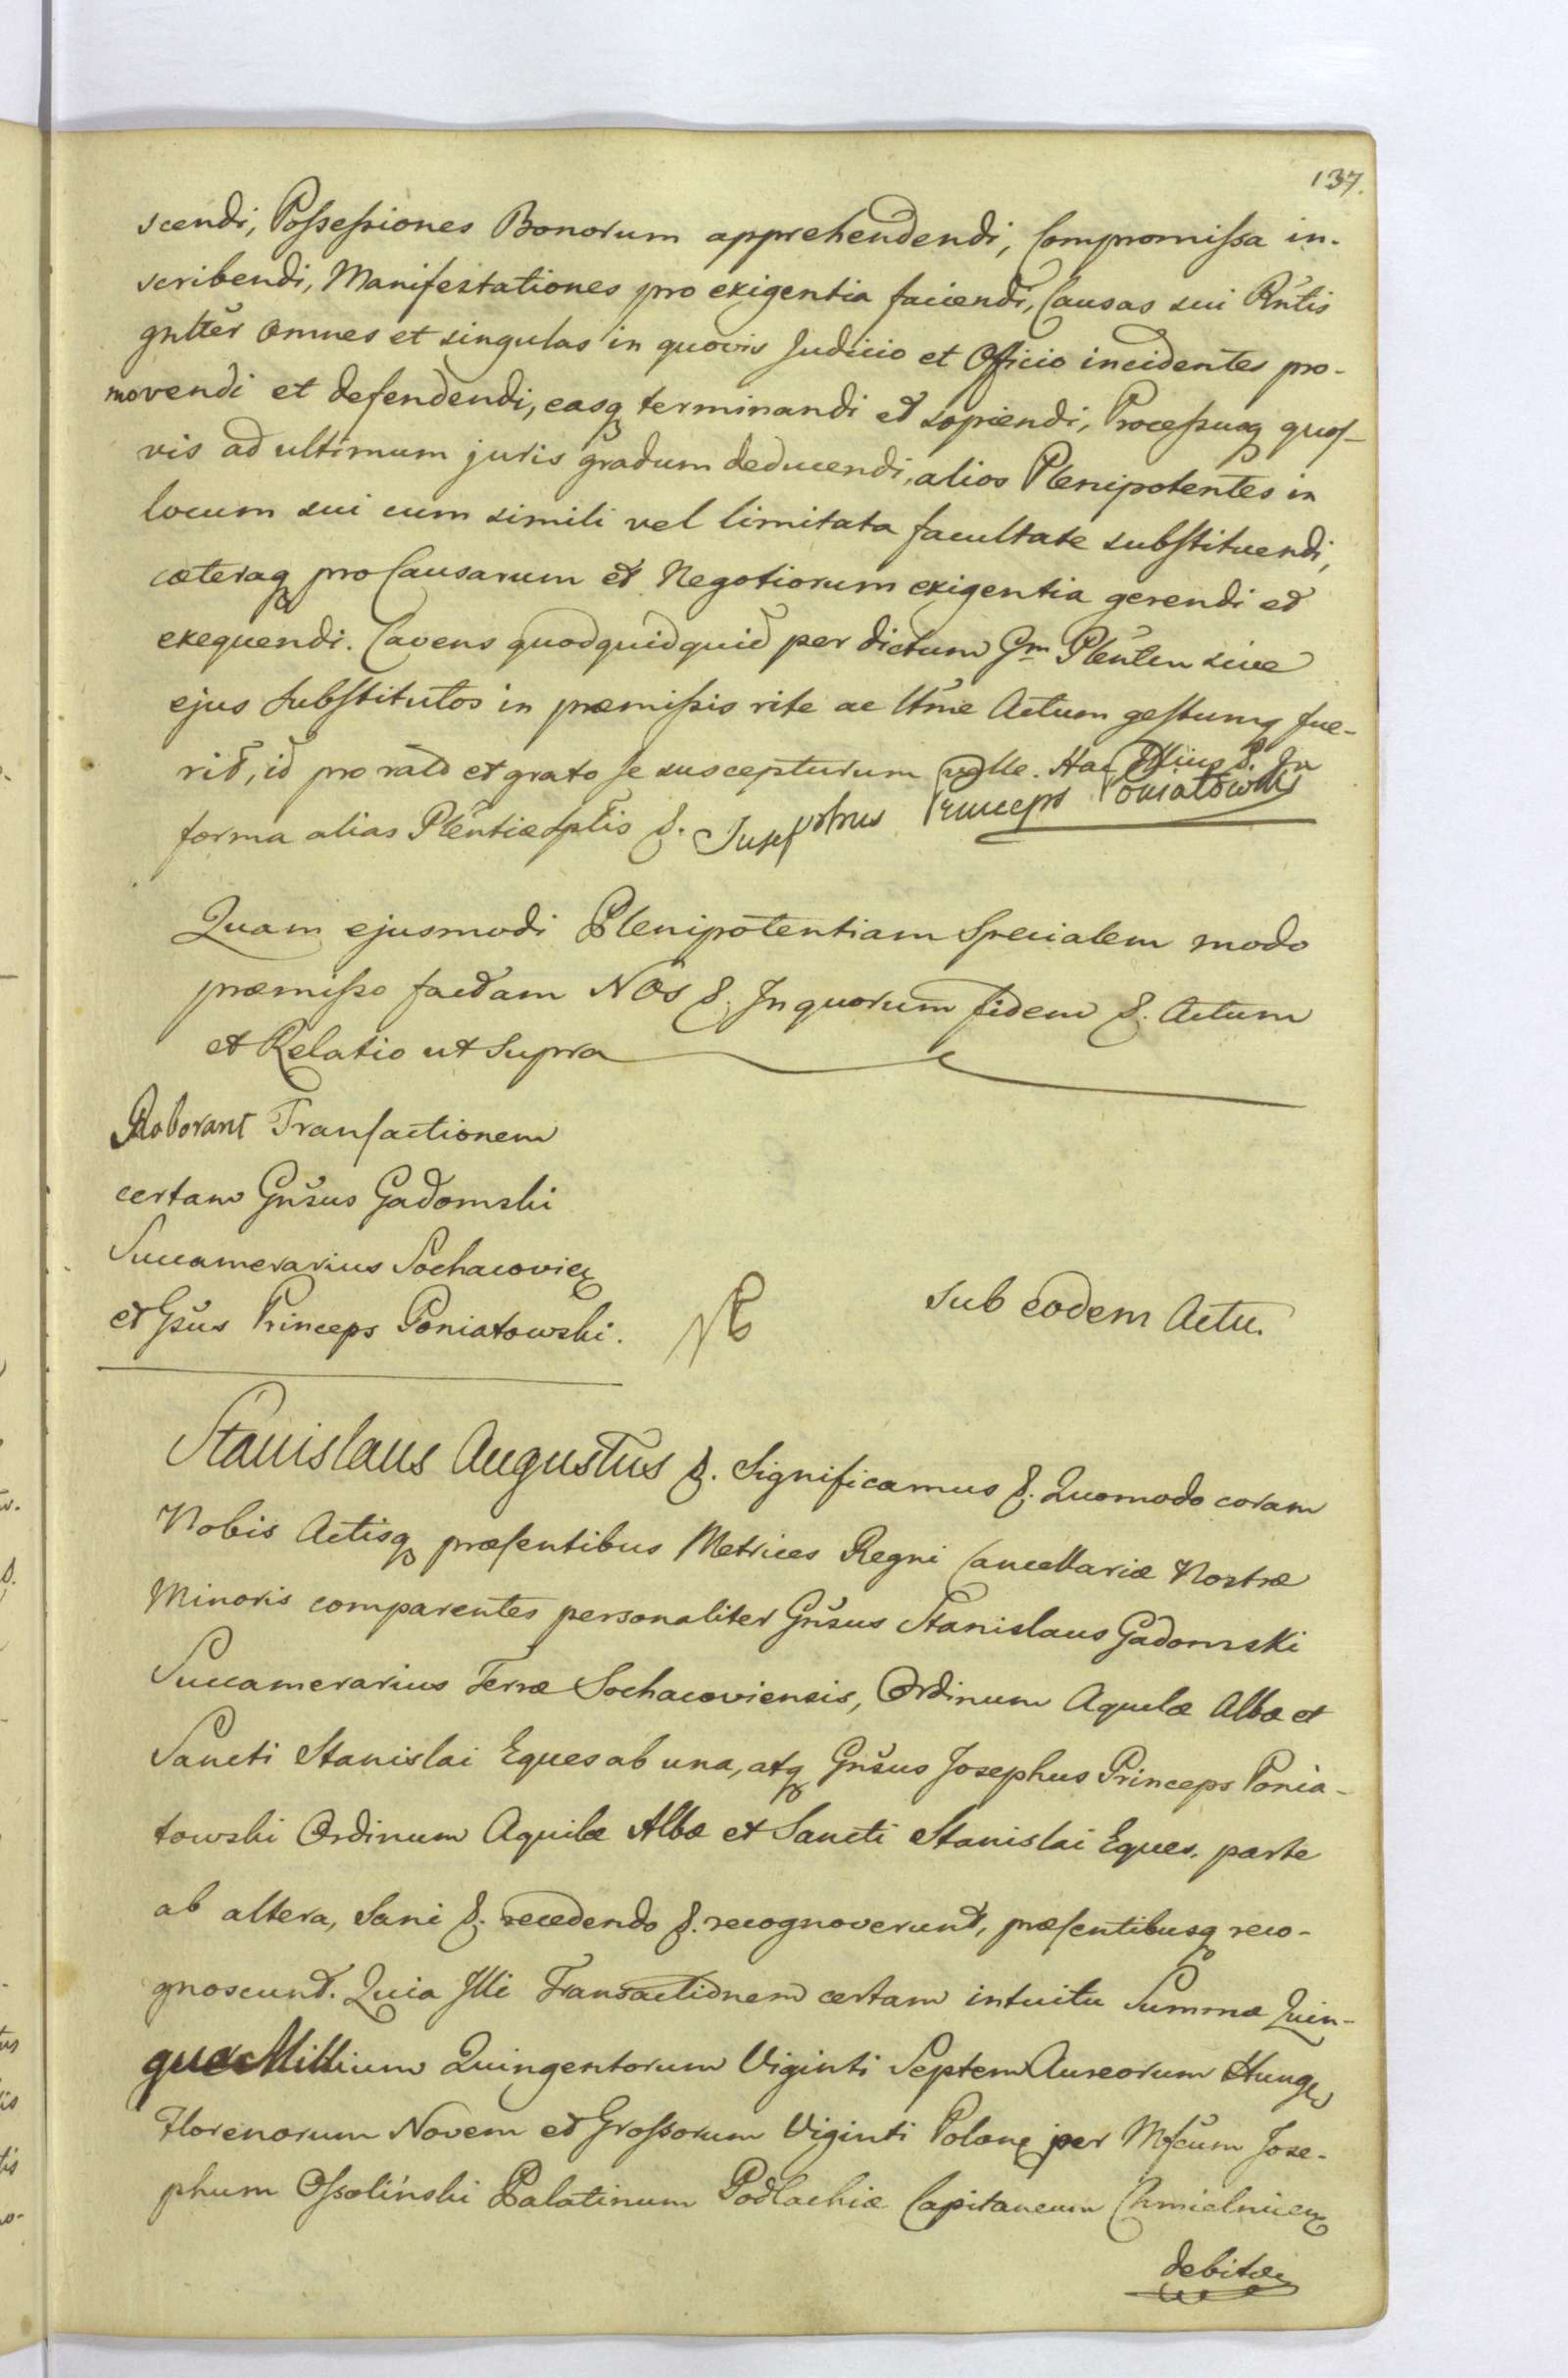 137.
scendi, Possessiones Bonorum apprehendendi, Compromissa in-
scribendi, Manifestationes pro exigentia faciendi, Causas sui Rntis
gnlter omnes et singulas in quovis Judicio et Officio incidentes pro-
movendi et defendendi, easq terminandi et sopiendi, Processusq quos-
vis ad ultimum juris gradum deducendi, alios Plenipotentes in
locum sui cum simili vel limitata facultate substituendi,
cæteraq pro Causarum et Negotiorum exigentia gerendi et
exequendi. Cavens quod quidquid per dictum Gm Plentem sive
ejus Substitutos in præmissis rite ac ltme Actum gestumq fue-
rit, id pro rato et grato se suscepturum velle. Hac In
forma alias Plentiæ splis &. Josephus Princeps Poniatowski
Quam ejusmodi Plenipotentiam Specialem modo
præmisso factam NOS &. In quorum fidem &. Actum
et Relatio ut Supra
Roborant Transactionem
certam Gnsus Gadomski
Succamerarius Sochacovien
et Gsus Princeps Poniatowski.
sub eodem Actu.
Stanislaus Augustus &. Significamus &. Quomodo coram
Nobis Actisq præsentibus Metrices Regni Cancellariæ Nostræ
Minoris comparentes personaliter Gnsus Stanislaus Gadomski
Succamerarius Terræ Sochacoviensis, Ordinum Aquilæ Albæ et
Sancti Stanislai Eques ab una, atq Gnsus Josephus Princeps Ponia-
towski Ordinum Aquilæ Albæ et Sancti Stanislai Eques. parte
ab altera, Sani &. recedendo &. recognoverunt, præsentibusq reco-
gnoscunt. Quia Illi Transactionem certam intuitu Summæ Quin-
que Millium Quingentorum Viginti Septem Aureorum Hung
Florenorum Novem et Grossorum Viginti Polon per Mfcum Jose-
phum Ossoliński Palatinum Podlachiæ Capitaneum Chmielnicen
debitæ